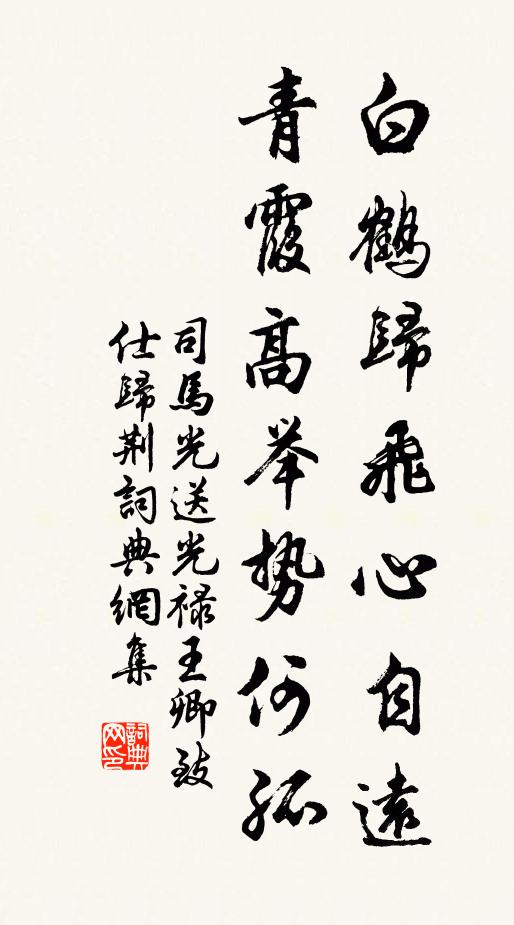 白鶴歸飛心自遠
青霞高举势何孤
司馬光送光禄王卿致
仕歸荆詞典網集
詞典
网印